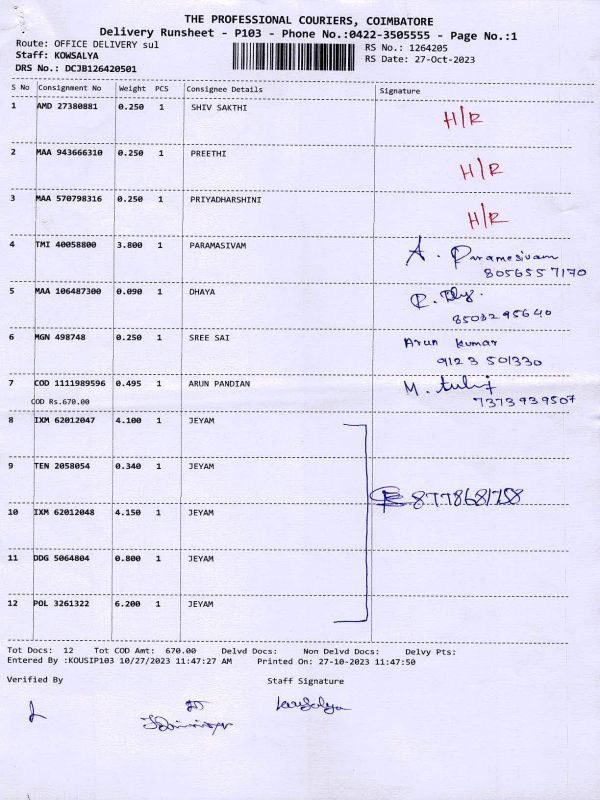 THE PROFESSIONAL COURIERS, COIMBATORE
Delivery Runsheet - P103 - Phone No.:0422-3505555 - Page No.:1
Route: OFFICE DELIVERY sul
RS No.: 1264205
Staff: KOWSALYA
RS Date: 27-Oct-2023
DRS No.: DCJB126420501
S No Consignment No Weight PCS Consignee Details Signature
1 AMD 27380881 0.250 1 SHIV SAKTHI H/R
2 MAA 943666310 0.250 1 PREETHI H/R
3 MAA 570798316 0.250 1 PRIYADHARSHINI H/R
4 TMI 40058800 3.800 1 PARAMASIVAM A. Paramesivam
8056557170
5 MAA 106487300 0.090 1 DHAYA
8503295640
6 MGN 498748 0.250 1 SREE SAI Arun kumar
9123 501330
7 COD 1111989596 0.495 1 ARUN PANDIAN
COD Rs.670.00 7373939507
8 IXM 62012047 4.100 1 JEYAM
9 TEN 2058054 0.340 1 JEYAM
8778681758
10 IXM 62012048 4.150 1 JEYAM
11 DDG 5064804 0.800 1 JEYAM
12 POL 3261322 6.200 1 JEYAM
Tot Docs: 12 Tot COD Amt: 670.00 Delvd Docs: Non Delvd Docs: Delvy Pts:
Entered By :KOUSIP103 10/27/2023 11:47:27 AM Printed On: 27-10-2023 11:47:50
Verified By Staff Signature